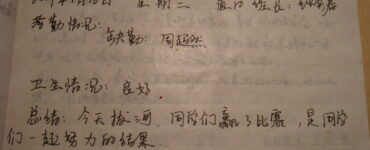 星期二
考勤情况：
缺勤：周超然
卫生情况：良好.
总结：今天拔河，同学们赢了比赛，是同学
们一起努力的结果